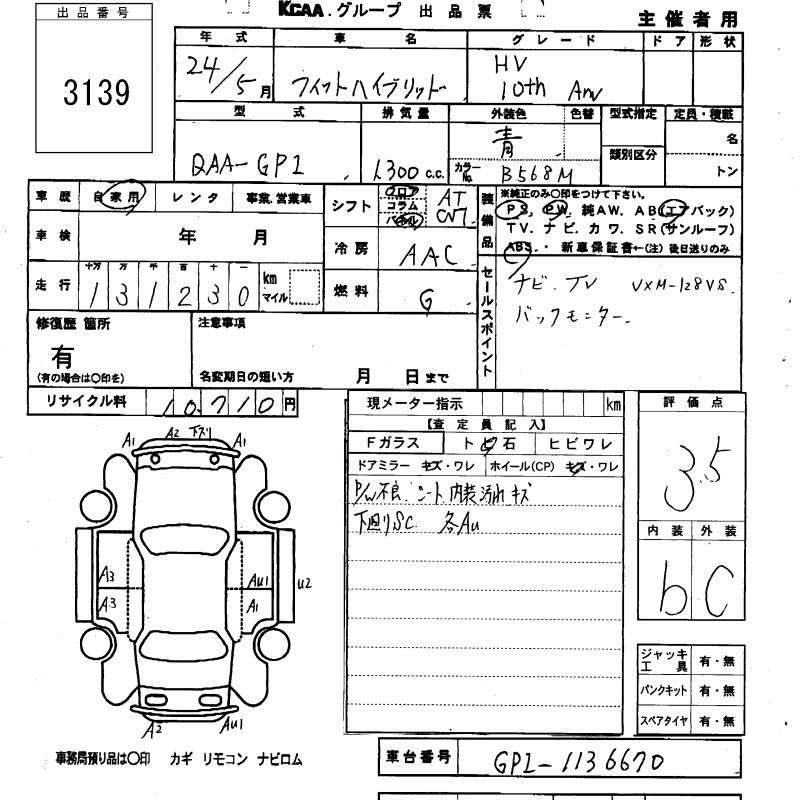 出品番号
3139
KCAA.グループ 出品票
主催者用
年式 車名 グレード ドア 形状
24/5月 フィットハイブリッド HV
10th Anv
型式 排気量 外装色 色替 型式指定 定員・積載
DAA-GP1 1,300c.c. 青 類別区分 名
カラーNo. B568M トン
車歴 自家用 レンタ 事業.営業車
シフト フロア コラム パネル AT CVT
装備品 ※純正のみ○印をつけて下さい。
PS. PW. 純AW. AB(エアバック)
TV. ナビ. カワ. SR(サンルーフ)
ABS. ・ 新車保証書←(注) 後日送りのみ
車検 年 月
冷房 AAC
走行 十万 万 千 百 十 一
131230 km マイル
燃料 G
セールスポイント
ナビ. TV VXM-128VS.
バックモニター.
修復歴 箇所
有
(有の場合は○印を)
注意事項
名変期日の短い方 月 日まで
リサイクル料 10,710円
現メーター指示 km
【査定員記入】
Fガラス ト ビ 石 ヒビワレ
ドアミラー キズ・ワレ ホイール(CP) キズ・ワレ
P/W不良. シート. 内装汚れキズ
下廻りSC. 各AU
評価点
3.5
内装 外装
b C
A1 A2 下ズリ A1
A3 AU1 U2
A3 A1
A2 AU1
ジャッキ工具 有・無
パンクキット 有・無
スペアタイヤ 有・無
事務局預り品は○印 カギ リモコン ナビロム
車台番号 GP1-1136670